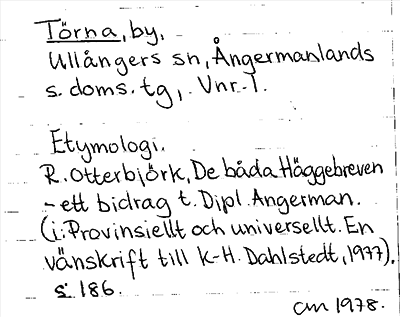 Törna, by,
Ullångers sn, Ångermanlands
s. doms. tg, Vnr. 1.
Etymologi.
R. Otterbjörk, De båda Häggebreven
- ett bidrag t. Dipl. Angerman.
(i: Provinsiellt och universellt. En
vänskrift till K-H. Dahlstedt, 1977),
s. 186.
cm 1978.